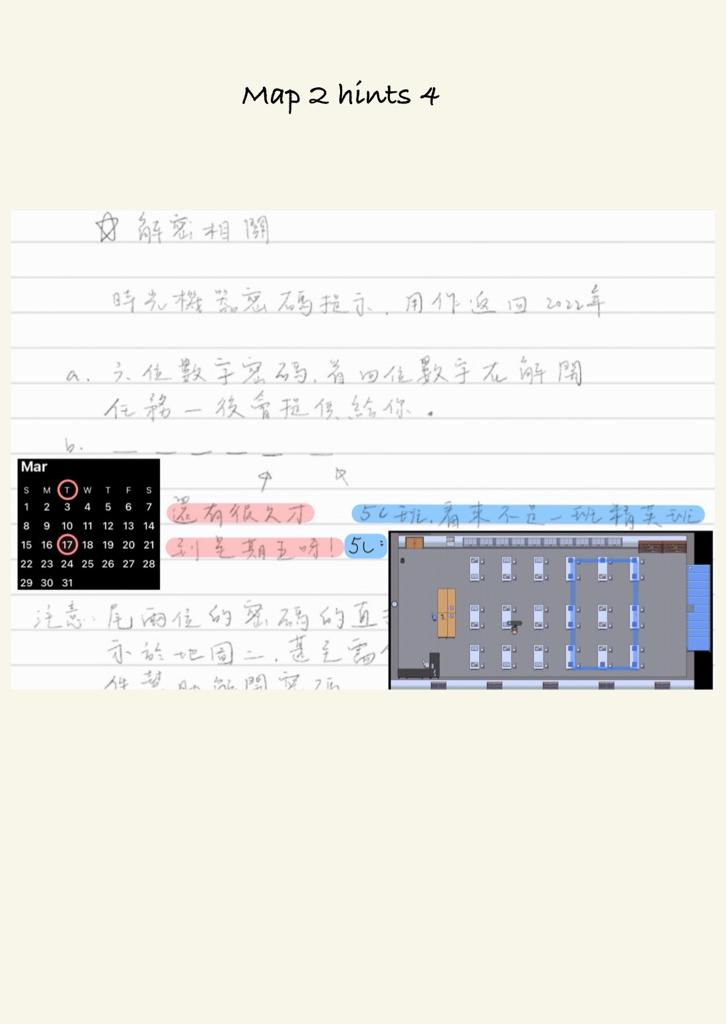 Map 2 hints 4
☆ 解密相關
時光機器密碼提示，用作返回 2022年
a. 六位數字密碼，首四位數字在解開
任務一後會提供給你。
b. _ _ _ _ _ _
Mar
S M T W T F S
1 2 3 4 5 6 7
8 9 10 11 12 13 14
15 16 17 18 19 20 21
22 23 24 25 26 27 28
29 30 31
還有很久才
到星期五呀！
5L班，看來不是一班精英班
5L：
注意：尾兩位的密碼的直
示於地圖二，甚至需
解開密碼